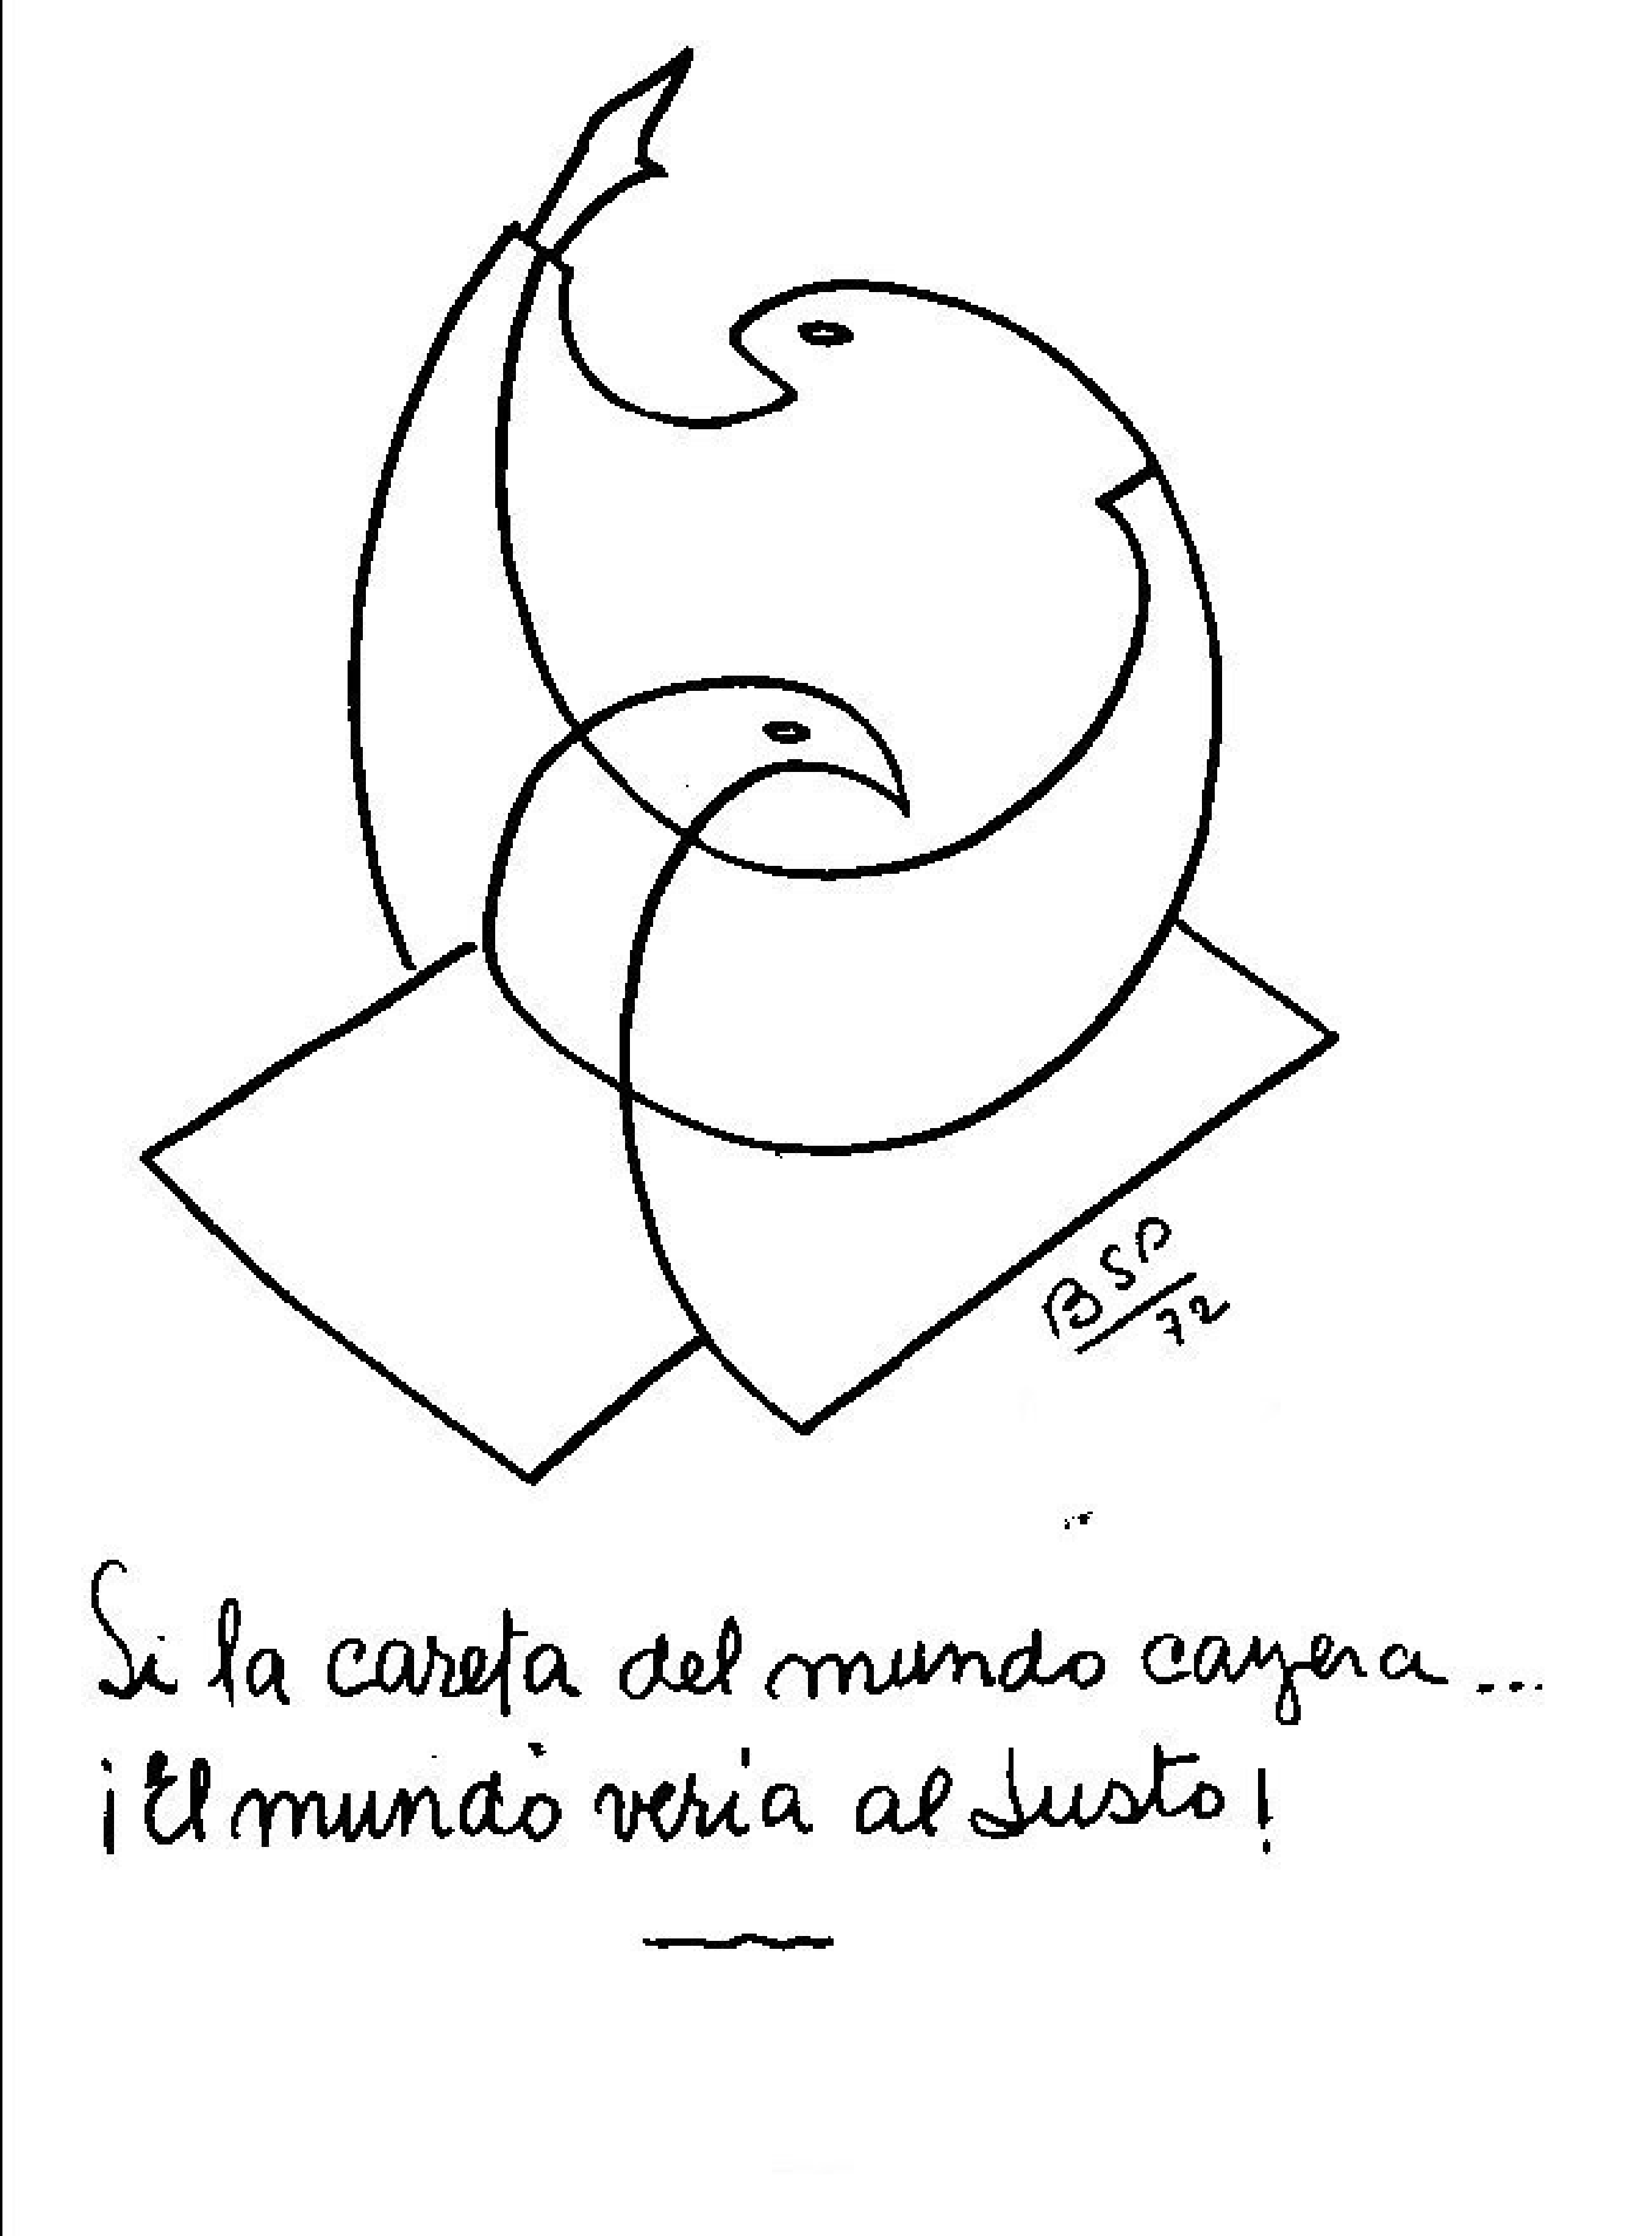 BSP
72
Si la careta del mundo cayera...
¡El mundo vería al Justo!